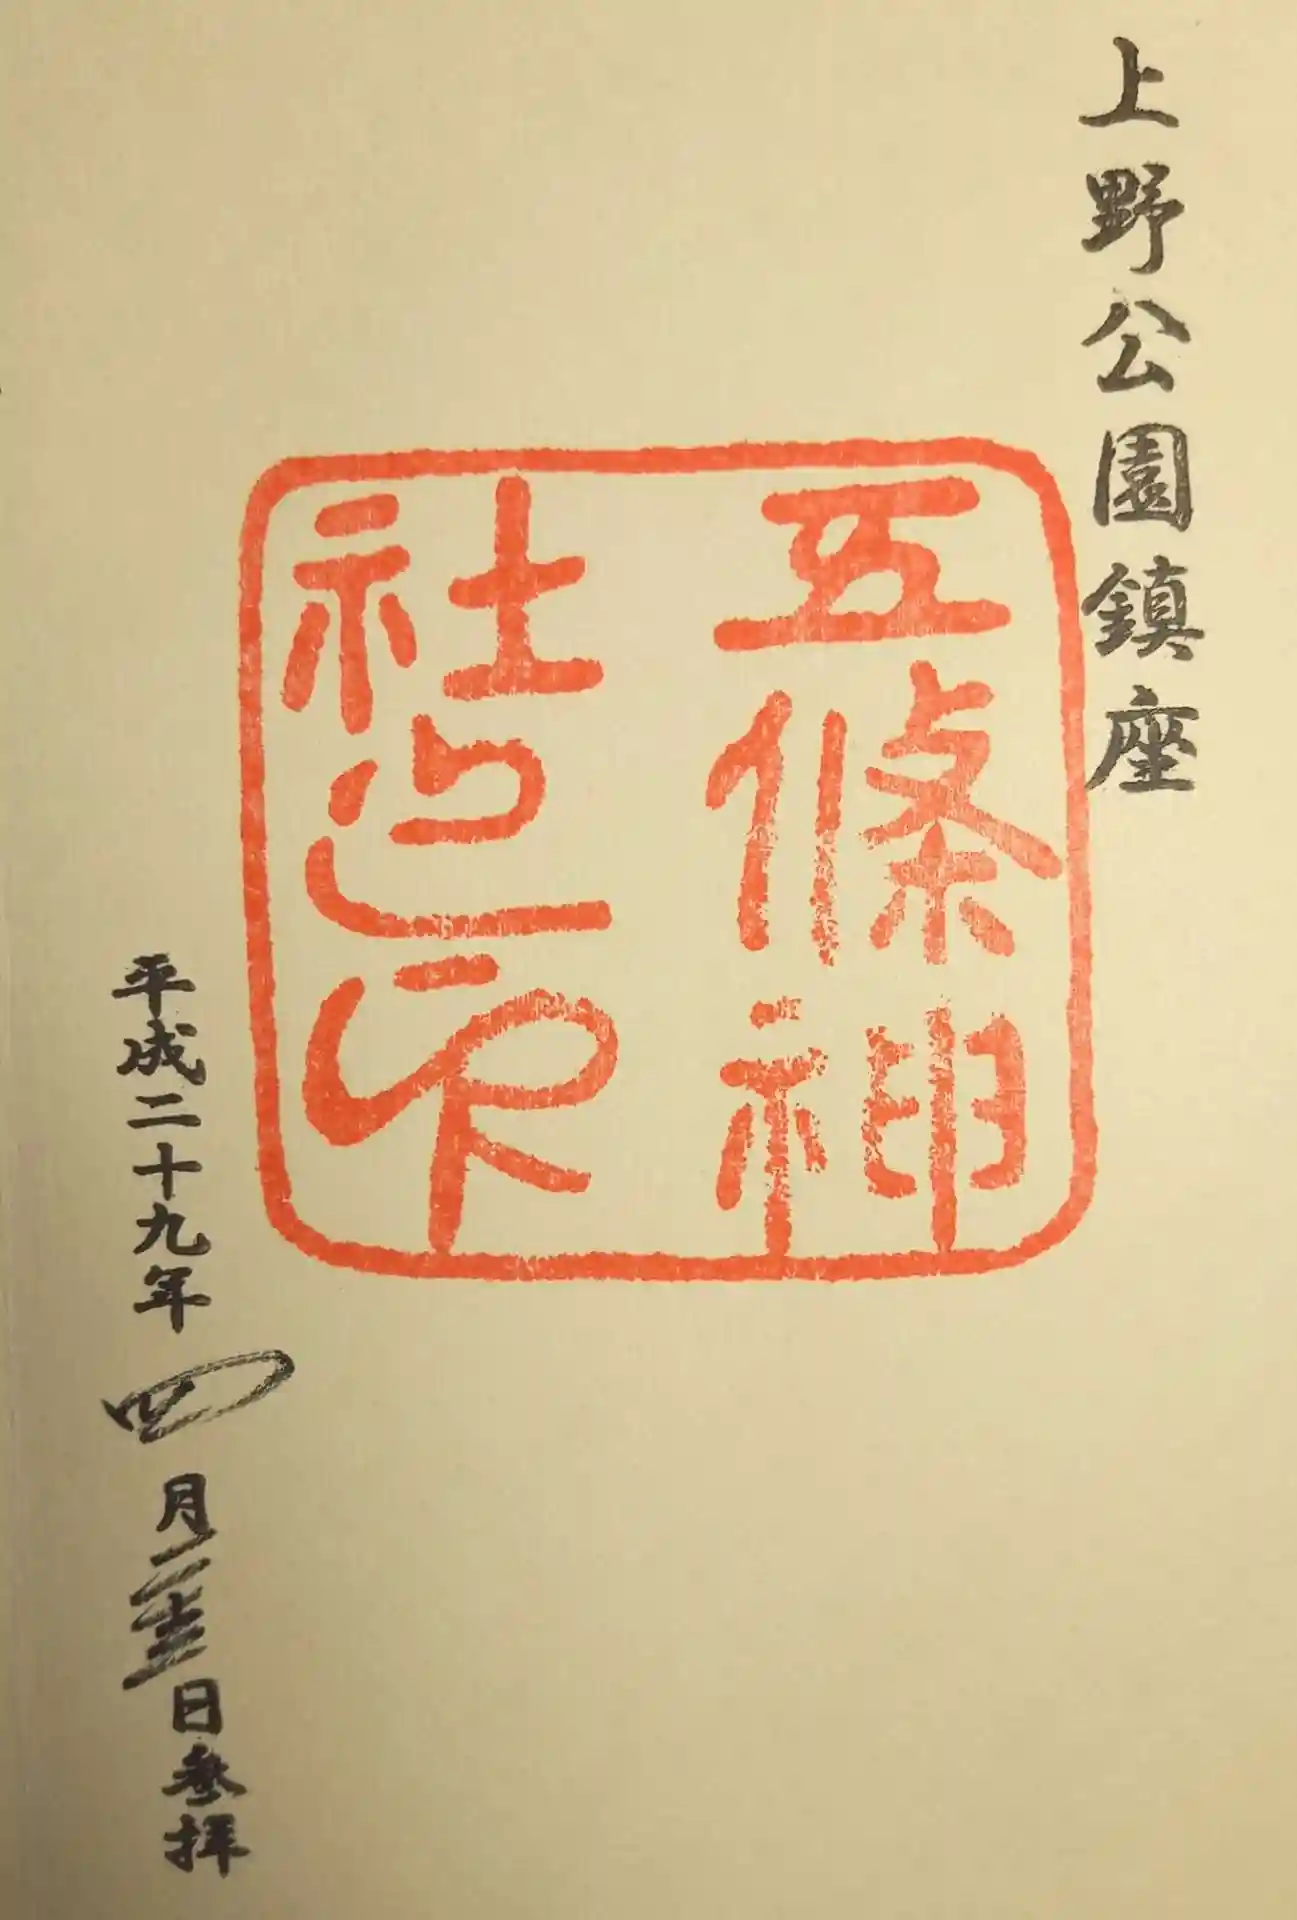 上野公園鎮座
五條神
社之印
平成二十九年四月二十三日参拝